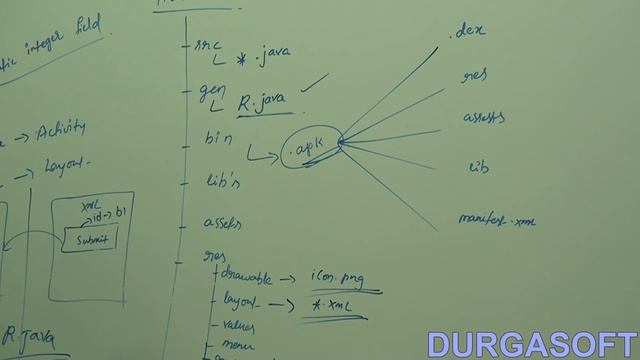 integer field
src
* .java
gen
R.java
bin
.apk
lib's
assets
res
drawable → icon.png
layout → *.xml
values
menu
.dex
res
assets
lib
manifest.xml
→ Activity
→ Layout
XML
→ id → b1
Submit
R.java
DURGASOFT